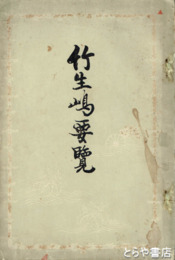 竹生嶋要覧
© とらや書店